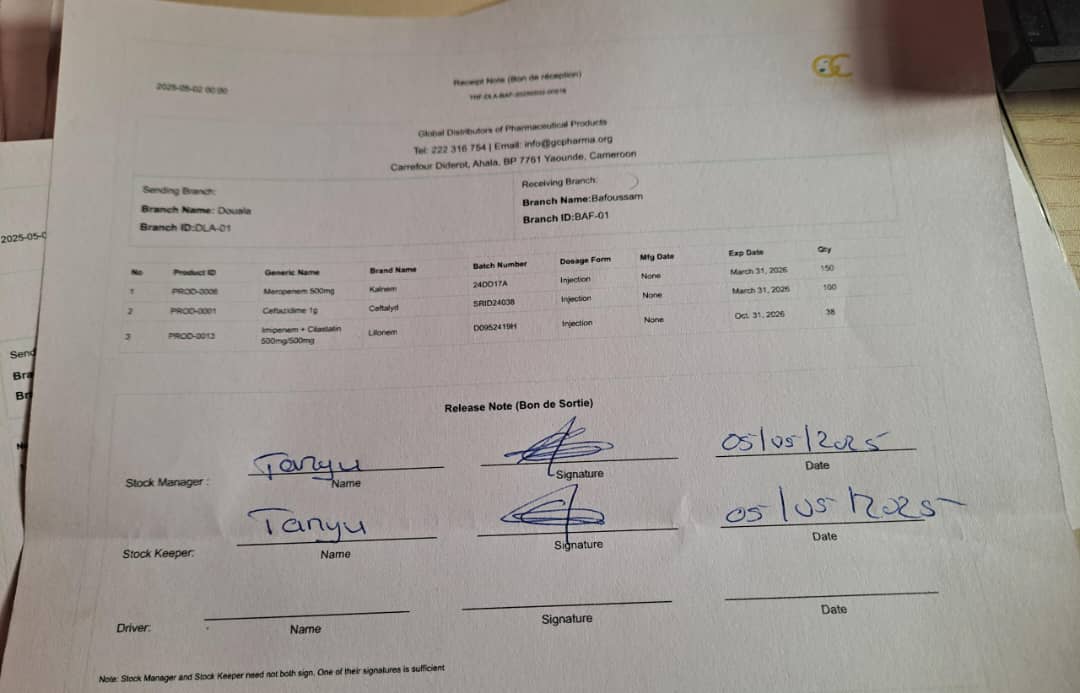 2025-05-02 00:00
Receipt Note (Bon de réception)
GC
Global Distributors of Pharmaceutical Products
Tel: 222 316 754 | Email: info@gcpharma.org
Carrefour Diderot, Ahala, BP 7761 Yaounde, Cameroon
Sending Branch:
Branch Name: Douala
Branch ID:DLA-01
Receiving Branch:
Branch Name:Bafoussam
Branch ID:BAF-01
No Product ID Generic Name Brand Name Batch Number Dosage Form Mfg Date Exp Date Qty
1 PROD-0006 Meropenem 500mg Kalnem 24DD17A Injection None March 31, 2026 150
2 PROD-0001 Ceftazidime 1g Ceftalyd SRID24038 Injection None March 31, 2026 100
3 PROD-0013 Imipenem + Cilastatin 500mg/500mg D0952419H Injection None Oct. 31, 2026 38
Release Note (Bon de Sortie)
Stock Manager : Tanyu 05/05/2025
Name Signature Date
Stock Keeper: Tanyu 05/05/2025
Name Signature Date
Driver:
Name Signature Date
Note: Stock Manager and Stock Keeper need not both sign. One of their signatures is sufficient
2025-05-0
Send
Bra
Br